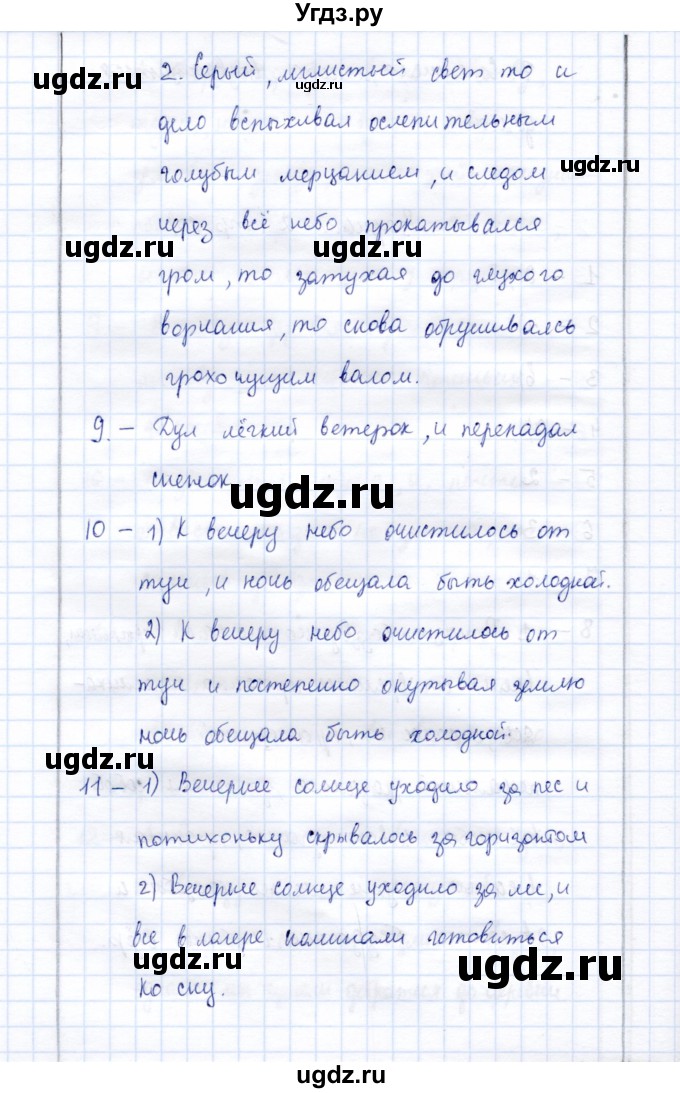 Угдз.ру
2. Серый, мглистый свет то и
дело вспыхивал ослепительным
голубым мерцанием, и следом
через всё небо прокатывался
гром, то затухая до глухого
ворчания, то снова обрушиваясь
грохочущим валом.
9. – Дул лёгкий ветерок, и перепадал
снежок.
10 – 1) К вечеру небо очистилось от
туч, и ночь обещала быть холодной.
2) К вечеру небо очистилось от
туч и постепенно окутывая землю
ночь обещала быть холодной.
11 – 1) Вечернее солнце уходило за лес и
потихоньку скрывалось за горизонтом
2) Вечернее солнце уходило за лес, и
все в лагере начинали готовиться
ко сну.
ugdz.ru
ugdz.ru
ugdz.ru
ugdz.ru
ugdz.ru
ugdz.ru
ugdz.ru
ugdz.ru
ugdz.ru
ugdz.ru
ugdz.ru